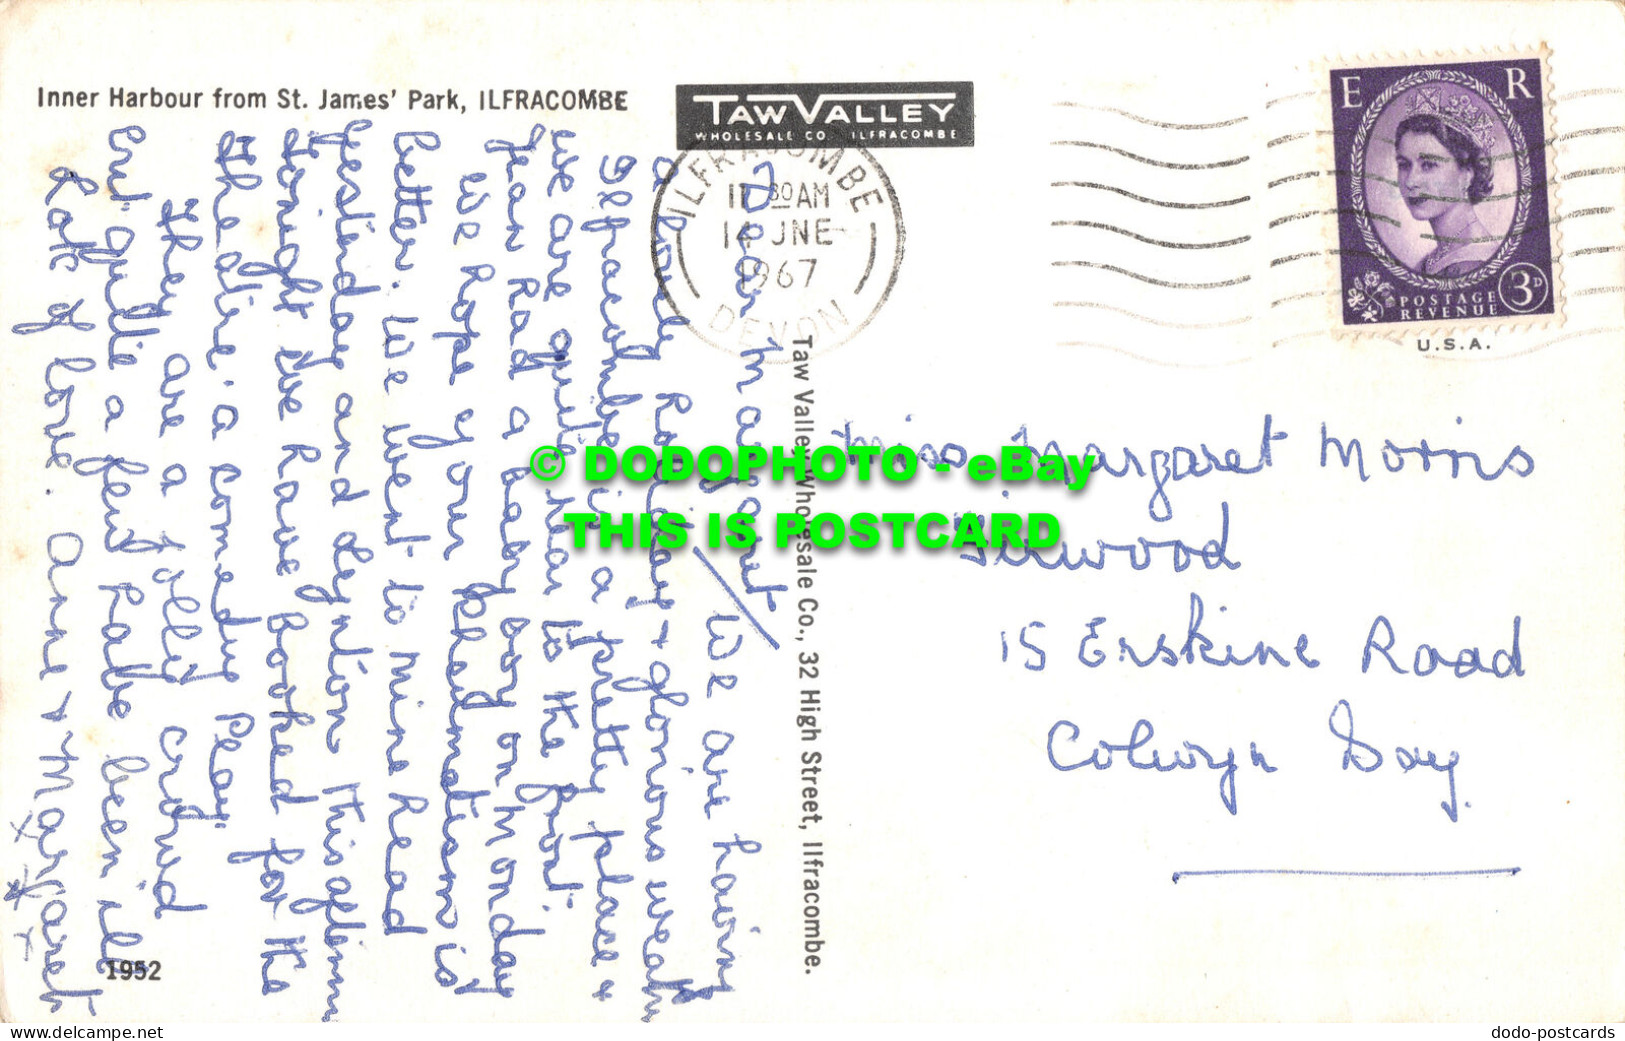 Inner Harbour from St. James' Park, ILFRACOMBE
TAW VALLEY
WHOLESALE CO. ILFRACOMBE
ILFRACOMBE
11 30 AM
14 JNE
1967
DEVON
E R
POSTAGE
REVENUE
3D
U.S.A.
Dear Margaret
We are having
a lovely Holiday + glorious weath
Ilfracombe is a pretty place +
we are quite near to the front.
Jean had a baby boy on Monday
We hope your Rheumatism is
better. We went to Mine Head
yesterday and Lynton this afternn
Tonight we have Booked for the
Theatre. a comedy Play.
They are a jolly crowd
but quite a few have been ill
Lots of love. Anne + Margaret
x x x
Taw Valley Wholesale Co., 32 High Street, Ilfracombe.
Miss Margaret Morris
Firwood
15 Erskine Road
Colwyn Bay.
1952
© DODOPHOTO - eBay
THIS IS POSTCARD
delcampe.net
dodo-postcards